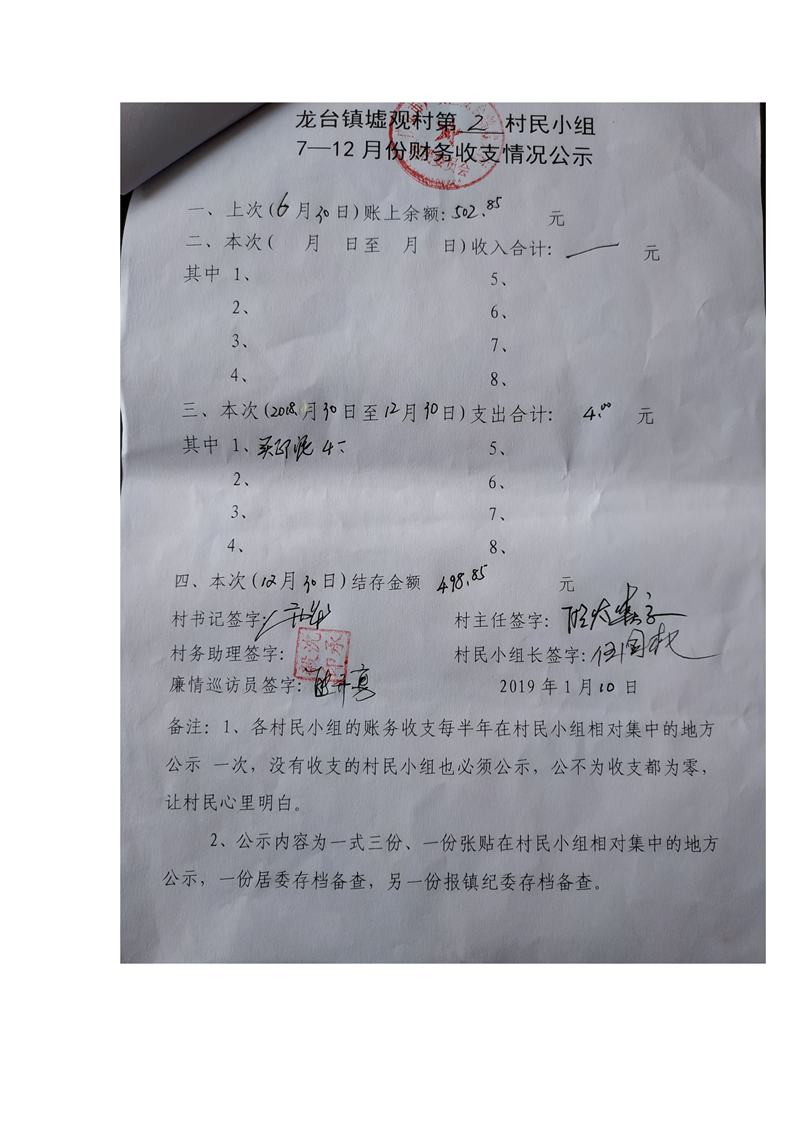 龙台镇墟观村第2村民小组
7—12月份财务收支情况公示
一、上次(6月30日)账上余额:502.85 元
二、本次( 月 日至 月 日)收入合计: — 元
其中 1、 5、
2、 6、
3、 7、
4、 8、
三、本次(2018. 月30日至12月30日)支出合计: 4.00 元
其中 1、买印泥 4 5、
2、 6、
3、 7、
4、 8、
四、本次(12月30日)结存金额 498.85 元
村书记签字: 村主任签字:
村务助理签字: 村民小组长签字:
廉情巡访员签字: 2019年1月10日
备注:1、各村民小组的账务收支每半年在村民小组相对集中的地方
公示 一次,没有收支的村民小组也必须公示,公不为收支都为零,
让村民心里明白。
2、公示内容为一式三份、一份张贴在村民小组相对集中的地方
公示,一份居委存档备查,另一份报镇纪委存档备查。